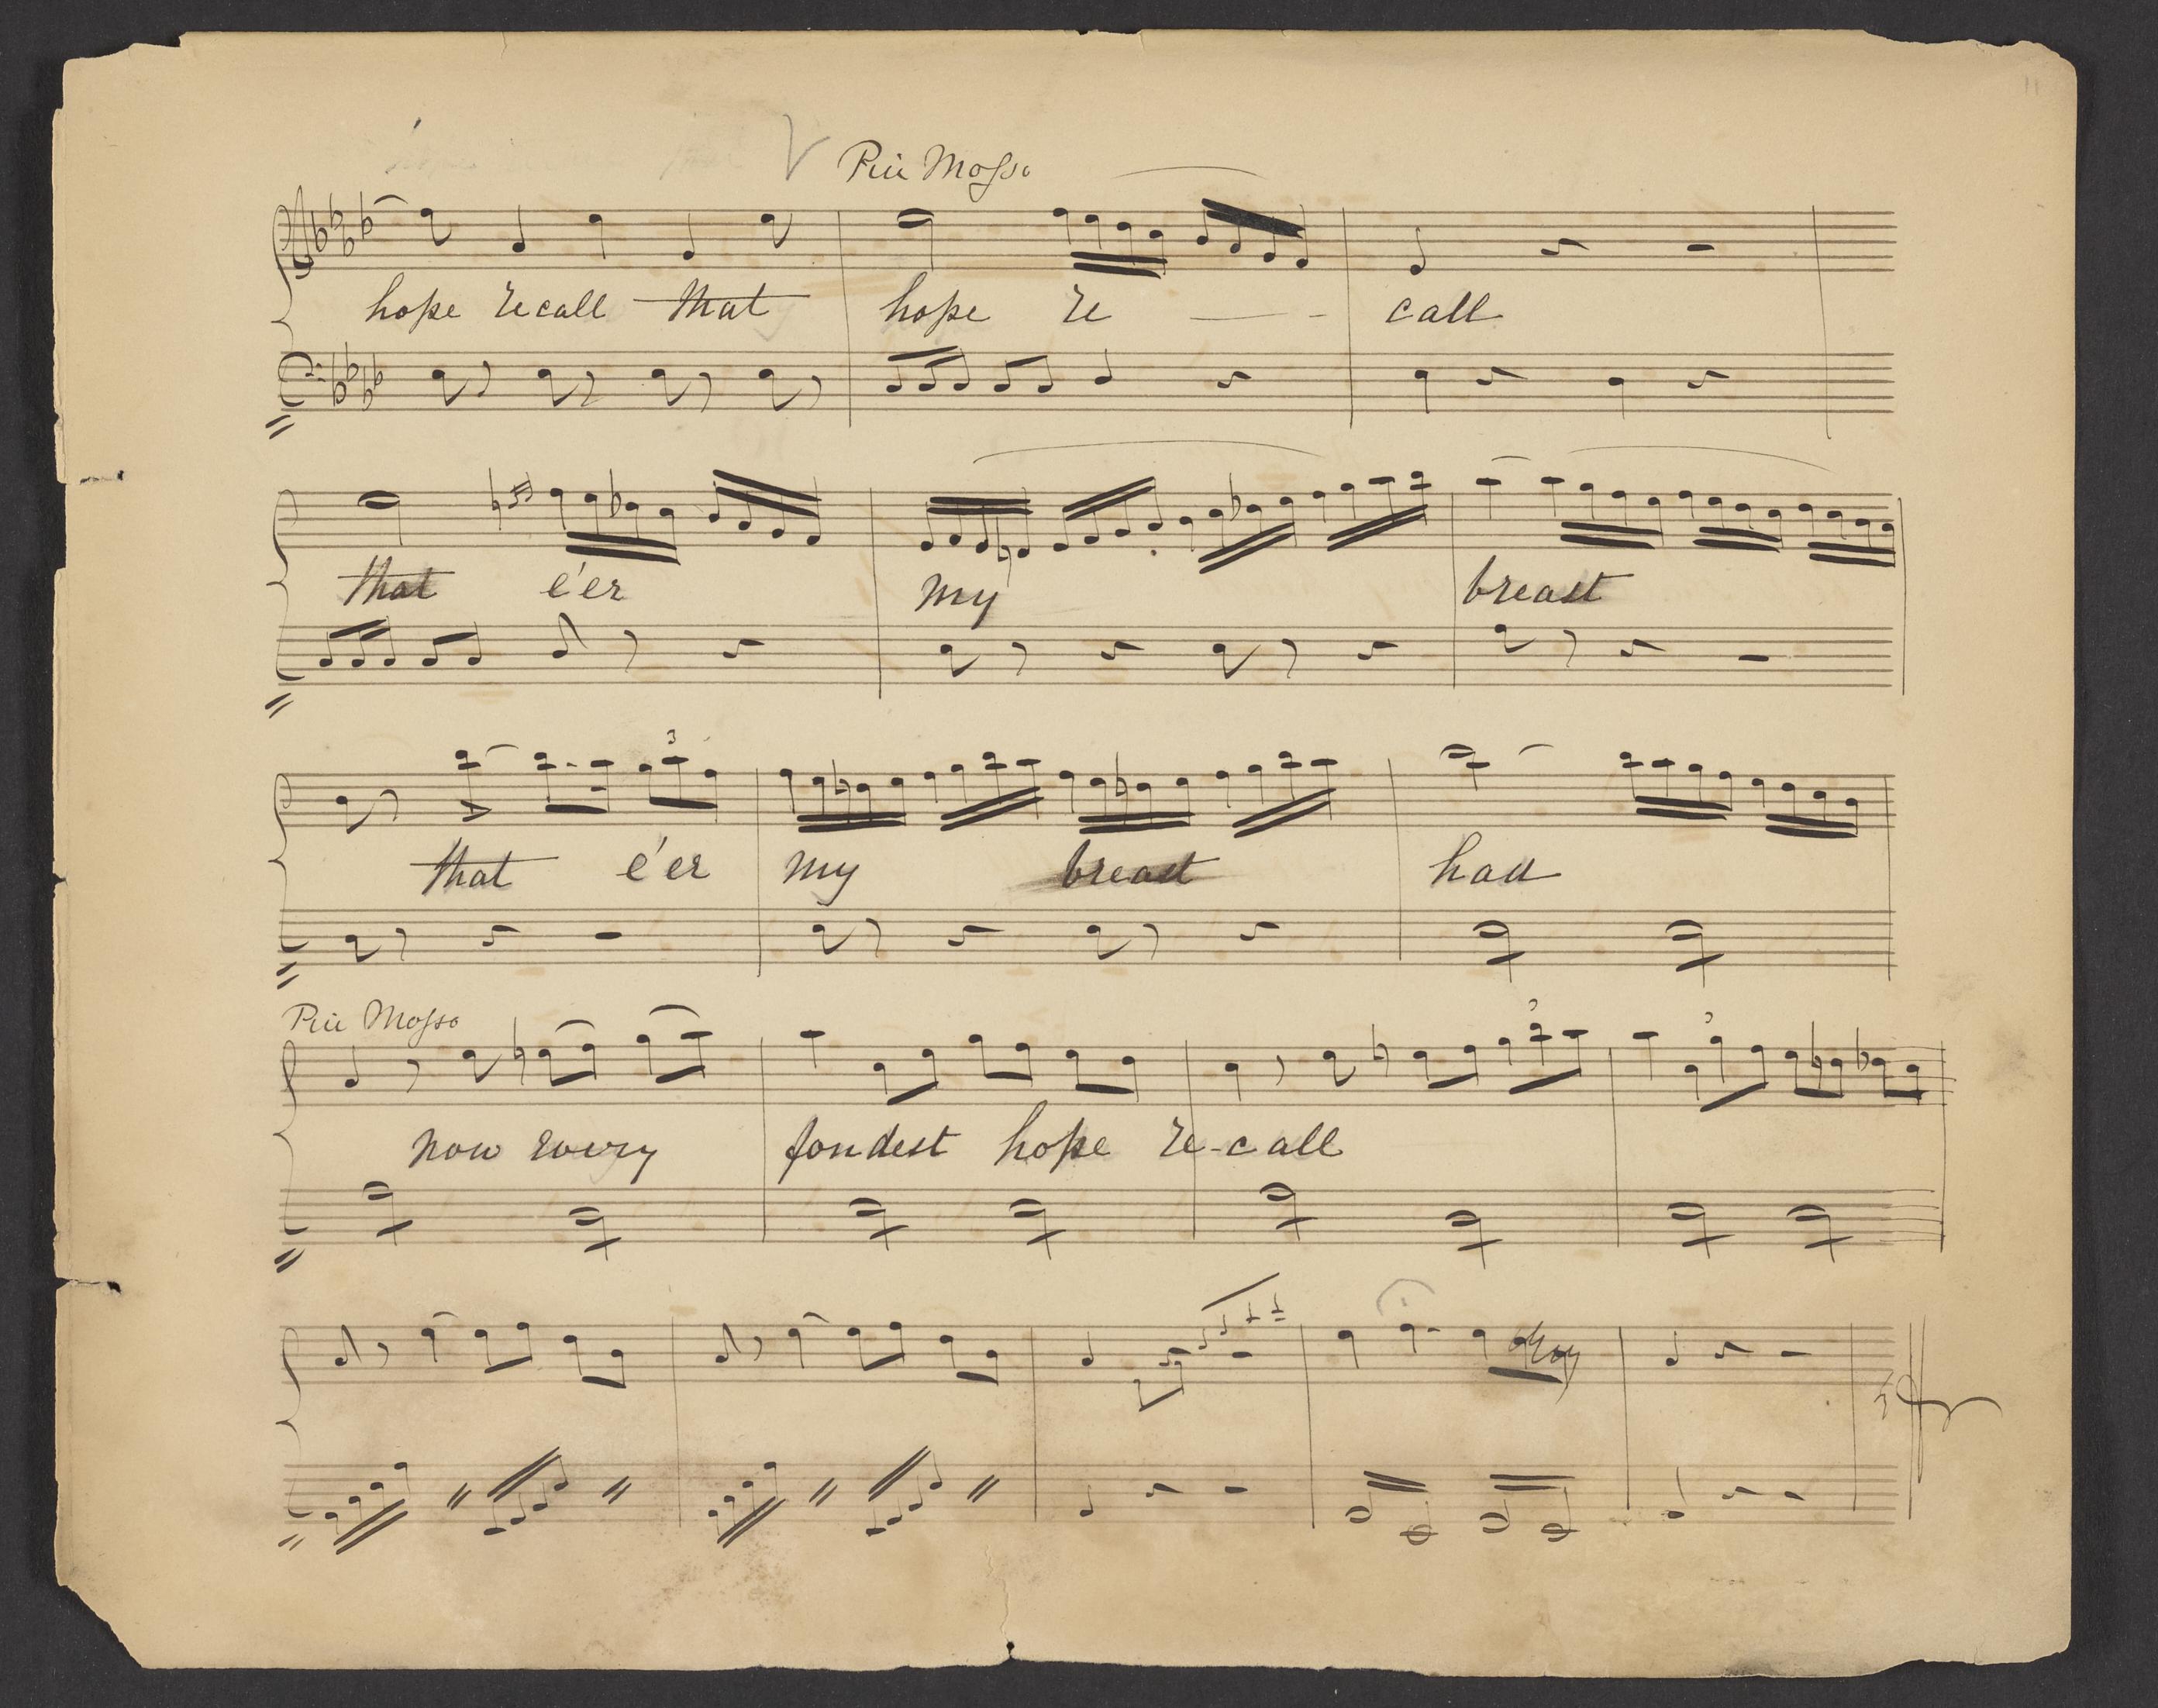 11
Più Mosso
hope recall that hope re - call
that e'er my breast
3
that e'er my breast had
Più Mosso
3 3
now every fondest hope re-call